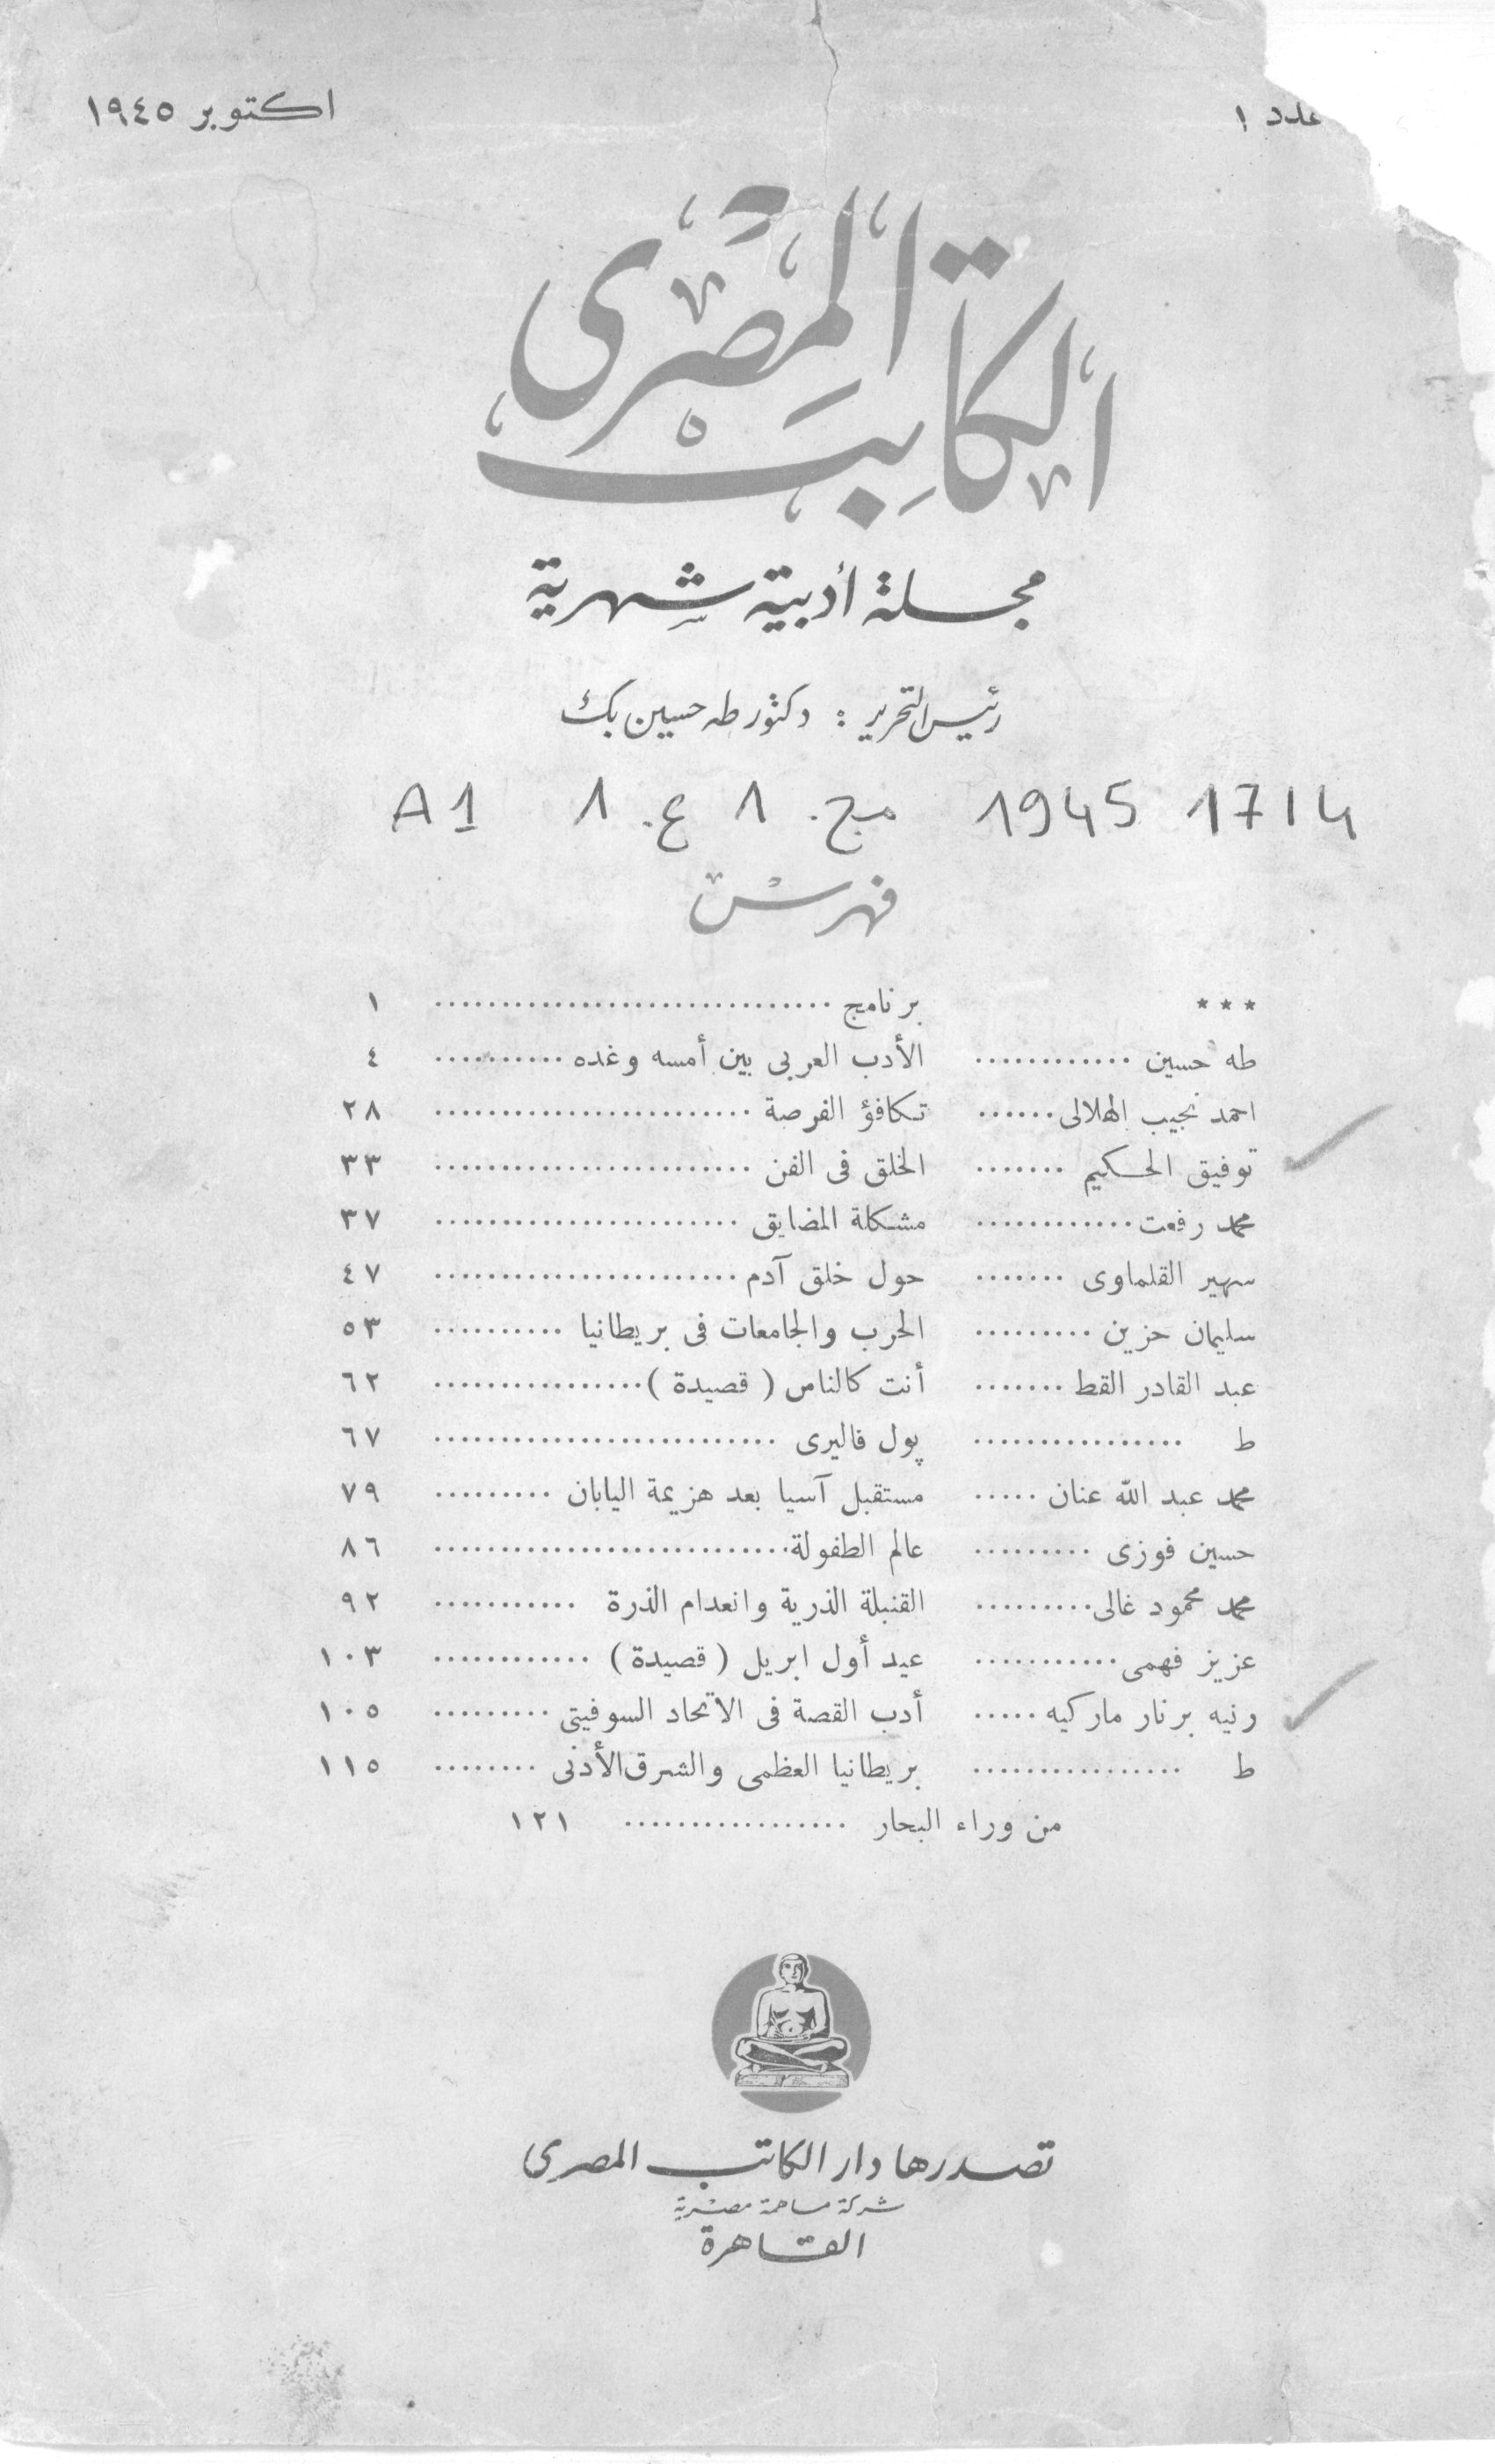 عدد ١ اكتوبر ١٩٤٥
الكاتب المصرى
مجلة أدبية شهرية
رئيس التحرير : دكتور طه حسين بك
A1 ١ ع. ١ مج. 1945 1714
فهرس
*** برنامج .............................. ١
طه حسين ............ الأدب العربى بين أمسه وغده .......... ٤
احمد نجيب الهلالى ...... تكافؤ الفرصة ........................ ٢٨
توفيق الحكيم ....... الخلق فى الفن ........................ ٣٣
محمد رفعت ............ مشكلة المضايق ....................... ٣٧
سهير القلماوى ....... حول خلق آدم ....................... ٤٧
سليمان حزين ......... الحرب والجامعات فى بريطانيا .......... ٥٣
عبد القادر القط ....... أنت كالناس ( قصيدة ) ................ ٦٢
ط ................ پول فاليرى .......................... ٦٧
محمد عبد الله عنان ..... مستقبل آسيا بعد هزيمة اليابان ......... ٧٩
حسين فوزى ......... عالم الطفولة ........................... ٨٦
محمد محمود غالى ......... القنبلة الذرية وانعدام الذرة ........... ٩٢
عزيز فهمى ........... عيد أول ابريل ( قصيدة ) ............ ١٠٣
رنيه برنار ماركيه ..... أدب القصة فى الاتحاد السوفيتى ......... ١٠٥
ط ................ بريطانيا العظمى والشرق الأدنى ........ ١١٥
من وراء البحار ................. ١٢١
تصدرها دار الكاتب المصرى
شركة مساهمة مصرية
القاهرة